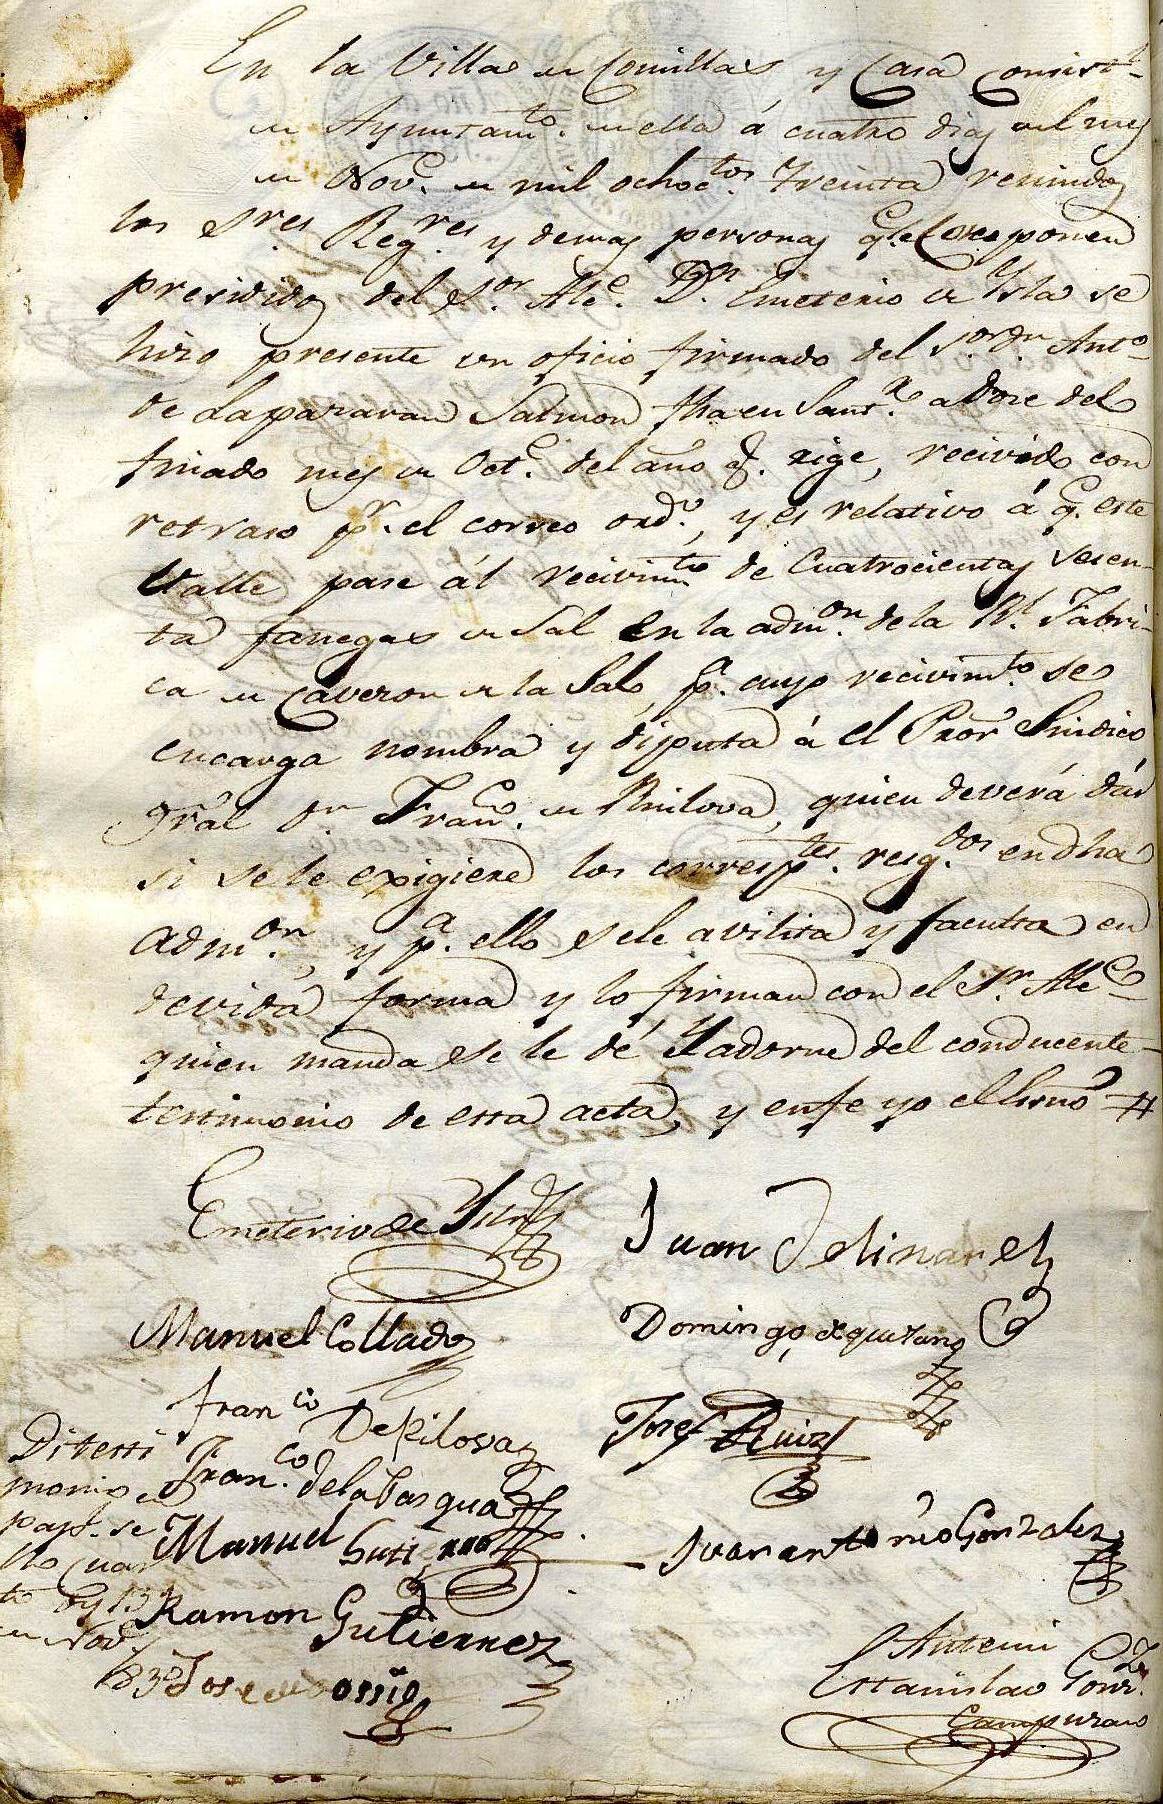 En la Villa de Comillas y Casa Consist.l
de Ayuntam.to de ella á cuatro dias del mes
de Nov.e de mil ochoc.tos treinta reunidos
los S.res Reg.res y demas personas q.e le componen
presididos del S.or Alc.e D.n Emeterio de Ysla se
hizo presente un oficio firmado del S.or d.n Ant.o
de Laparavan Salmon fha en Sant.r a doce del
finado mes de Oct.e del año q.e rige, recivido con
retraso p.r el correo ord.o, y es relativo á q.e este
Valle pase ál recivim.to de Cuatrocientas sesen-
ta fanegas de Sal en la adm.on de la R.l Fabri-
ca de Caveron de la Sal, p.a cuyo recivim.to se
encarga nombra y diputa á el Pror Sindico
Gral D.n Fran.co de Rilova, quien deverá dár
si se le exigiere los corresp.tes resg.dos en dha
Adm.on, y p.a ello se le avilita y faculta en
devida forma y lo firman con el S.r Alc.e
quien manda se le dé Yadorne del conducente
testimonio de esta acta, y en fe yo el Esno #
Emeterio de Ysla
Juan J Delinares
Manuel Collado
Domingo de quitano
Fran.co De Rilova
Josef Ruiz
Fran.co de la Pasqua
Manuel Gutierrez
Juan antonio Gonzalez
Ramon Gutierrez
Jose de Bossio
Di testi
monio en
pap. se
llo cuar
to oy 13
de Nov.e
1830
Antemi
Estanislao Gonz.z
Campuzano